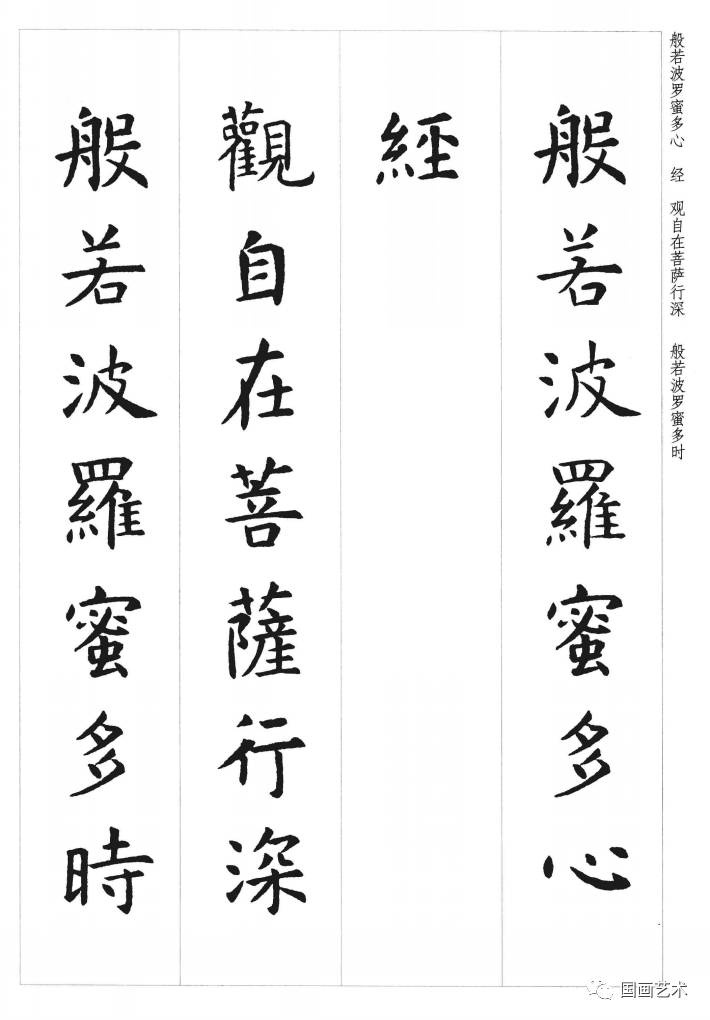 般若波罗蜜多心 经 观自在菩萨行深 般若波罗蜜多时
般若波羅蜜多心
經
觀自在菩薩行深
般若波羅蜜多時
国画艺术